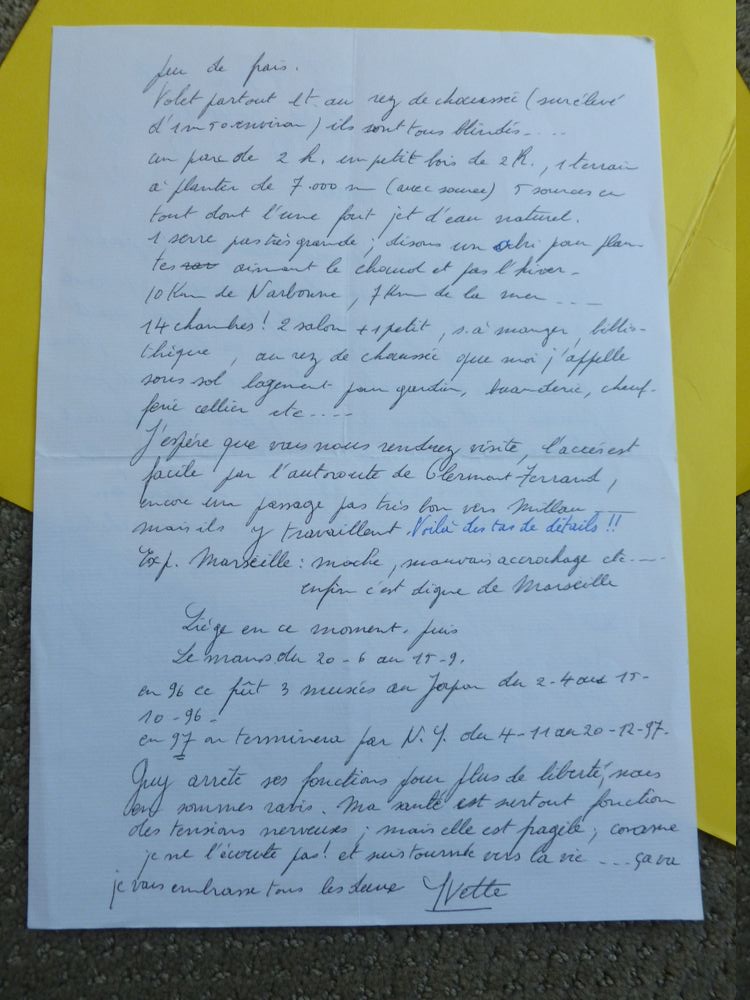 peu de frais.
Volet partout et au rez de chaussée (surélevé
d'1m50 environ) ils sont tous blindés....
un parc de 2 h. un petit bois de 2 h., 1 terrain
à planter de 7.000 m (avec source) 5 sources en
tout dont l'une fait jet d'eau naturel.
1 serre pas très grande ; disons un abri pour plan-
tes aimant le chaud et pas l'hiver -
10 Km de Narbonne, 7 Km de la mer ...
14 chambres! 2 salon + 1 petit, s. à manger, biblio-
thèque, au rez de chaussée que moi j'appelle
sous sol logement pour gardien, buanderie, chauf-
ferie cellier etc....
J'espère que vous nous rendrez visite, l'accès est
facile par l'autoroute de Clermont Ferrand,
encore un passage pas très bon vers Millau
mais ils y travaillent. Voilà des tas de détails!!
Exp. Marseille: moche, mauvais accrochage etc....
enfin c'est digne de Marseille
Liège en ce moment. puis
Le mans du 20-6 au 15-9.
en 96 ce fût 3 musées au Japon du 2-4 au 15-
10-96 -
en 97 on terminera par N.Y. du 4-11 au 20-12-97.
Guy arrête ses fonctions pour plus de liberté, nous
en sommes ravis. Ma santé est surtout fonction
des tensions nerveuses ; mais elle est fragile ; comme
je ne l'écoute pas! et suis tournée vers la vie ... ça va
je vous embrasse tous les deux Yvette